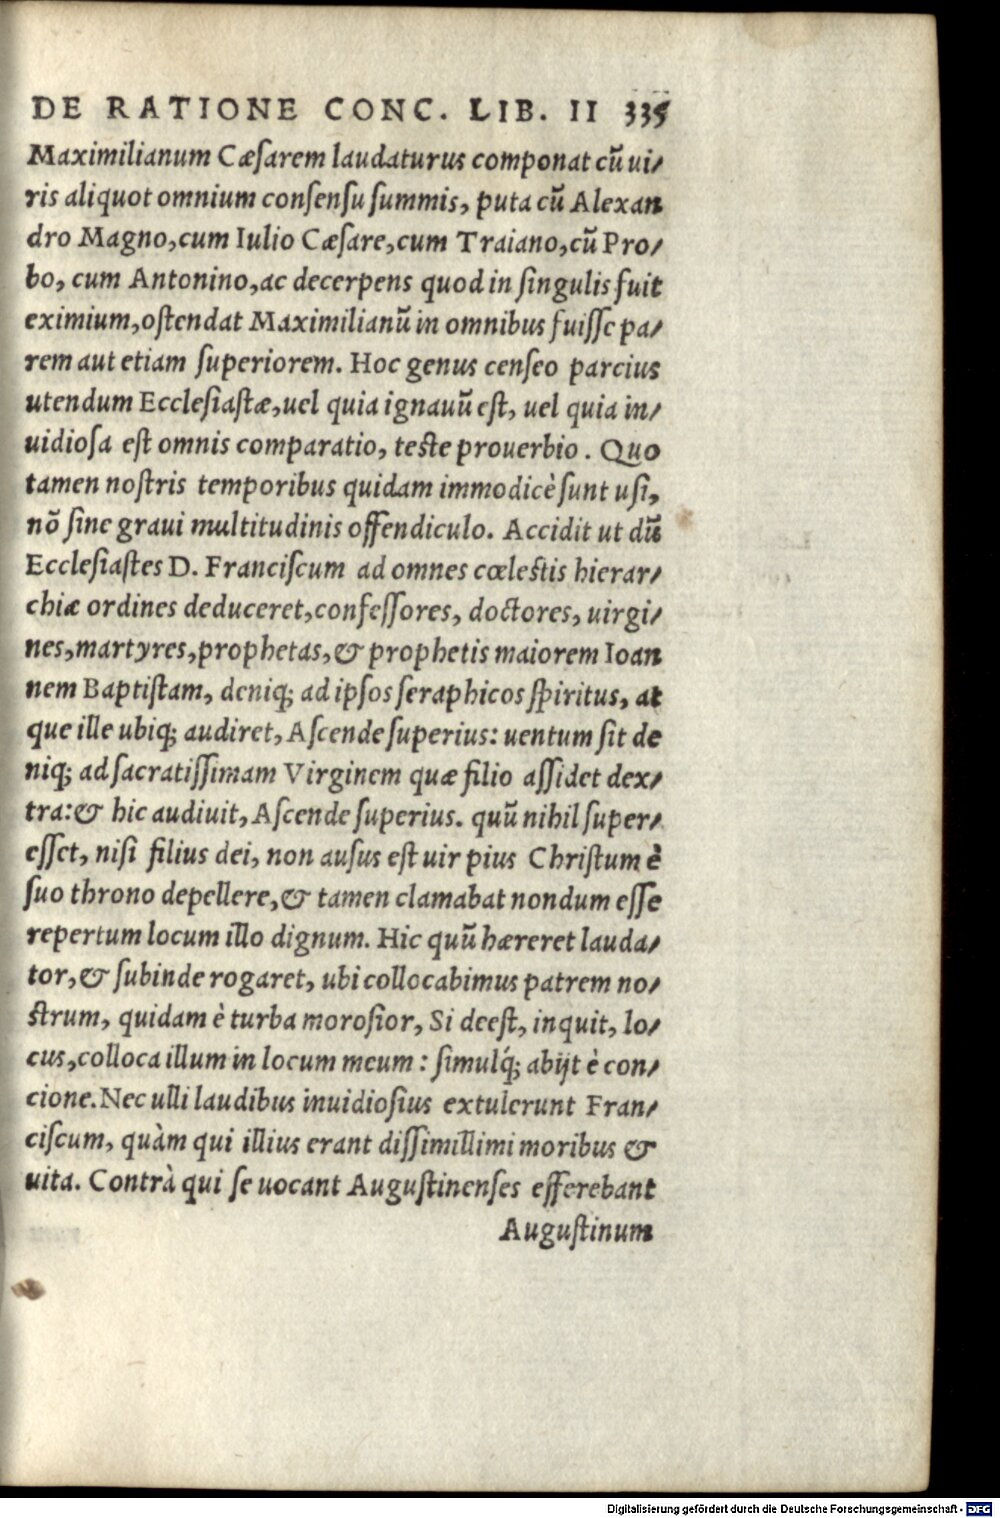 DE RATIONE CONC. LIB. II 335
Maximilianum Cæſarem laudaturus componat cū ui/
ris aliquot omnium conſenſu ſummis, puta cū Alexan
dro Magno, cum Iulio Cæſare, cum Traiano, cū Pro/
bo, cum Antonino, ac decerpens quod in ſingulis fuit
eximium, oſtendat Maximilianū in omnibus fuiſſe pa/
rem aut etiam ſuperiorem. Hoc genus cenſeo parcius
utendum Eccleſiaſtæ, uel quia ignauū eſt, uel quia in/
uidioſa eſt omnis comparatio, teſte prouerbio. Quo
tamen noſtris temporibus quidam immodicè ſunt uſi,
nō ſine graui multitudinis offendiculo. Accidit ut dū
Eccleſiaſtes D. Franciſcum ad omnes cœleſtis hierar/
chiæ ordines deduceret, confeſſores, doctores, uirgi/
nes, martyres, prophetas, & prophetis maiorem Ioan
nem Baptiſtam, deniq; ad ipſos ſeraphicos ſpiritus, at
que ille ubiq; audiret, Aſcende ſuperius: uentum ſit de
niq; ad ſacratiſſimam Virginem quæ filio aſſidet dex/
tra: & hic audiuit, Aſcende ſuperius. quū nihil ſuper/
eſſet, niſi filius dei, non auſus eſt uir pius Chriſtum è
ſuo throno depellere, & tamen clamabat nondum eſſe
repertum locum illo dignum. Hic quū hæreret lauda/
tor, & ſubinde rogaret, ubi collocabimus patrem no/
ſtrum, quidam è turba moroſior, Si deeſt, inquit, lo/
cus, colloca illum in locum meum: ſimulq́; abijt è con/
cione. Nec ulli laudibus inuidioſius extulerunt Fran/
ciſcum, quàm qui illius erant diſſimillimi moribus &
uita. Contrà qui ſe uocant Auguſtinenſes efferebant
Auguſtinum
Digitalisierung gefördert durch die Deutsche Forschungsgemeinschaft - DFG